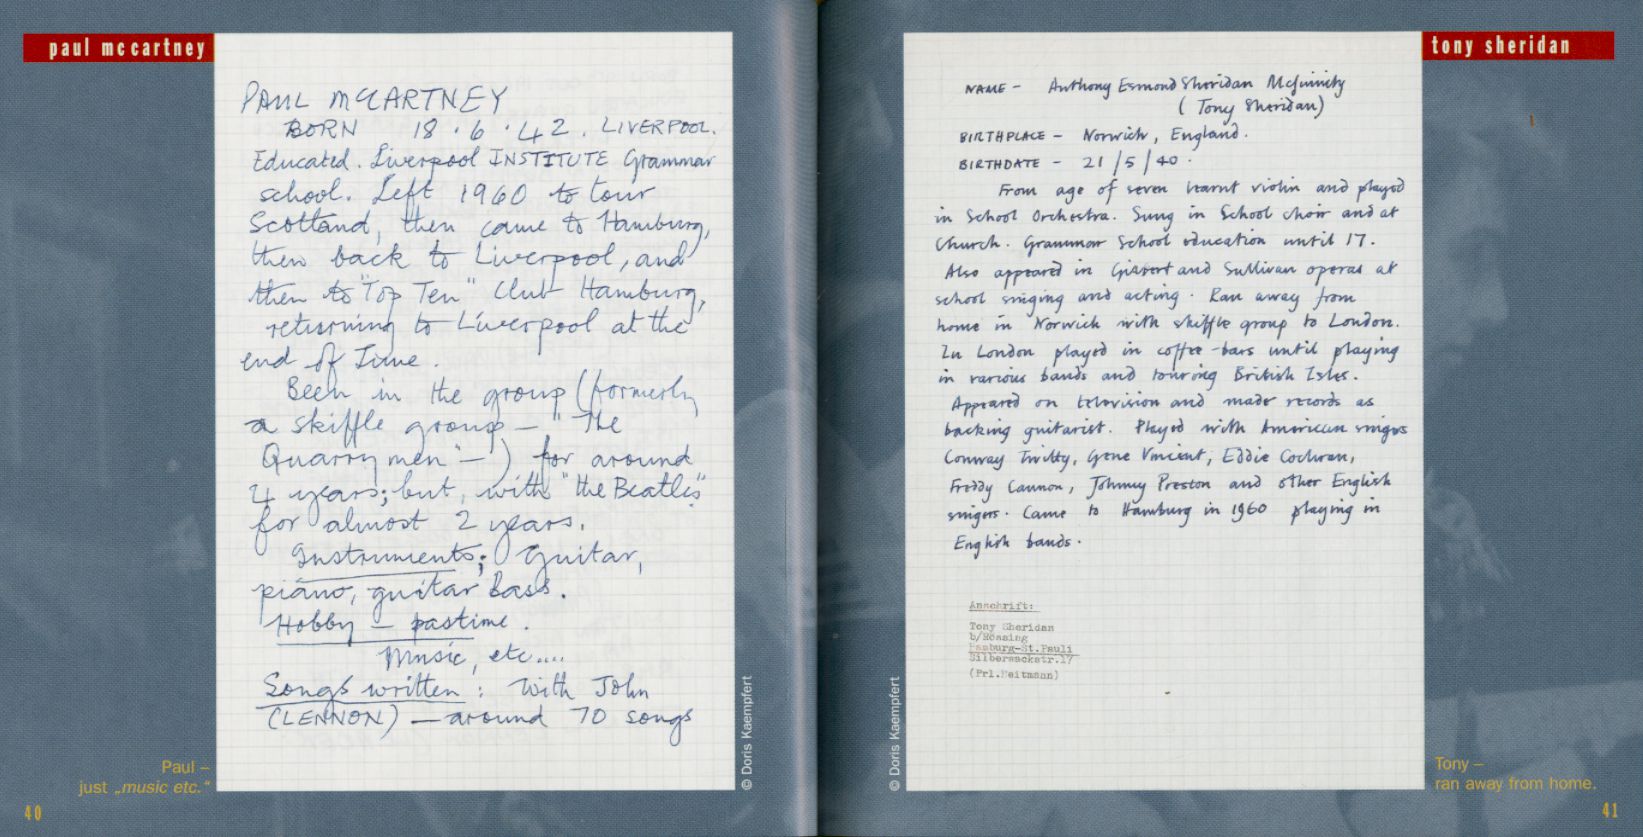 paul mccartney
PAUL MCCARTNEY
BORN 18.6.42. LIVERPOOL.
Educated. Liverpool INSTITUTE Grammar
school. Left 1960 to tour
Scotland, then came to Hamburg,
then back to Liverpool, and
then to "Top Ten" Club Hamburg,
returning to Liverpool at the
end of June.
Been in the group (formerly
a skiffle group — "The
Quarrymen" —) for around
4 years; but, with "the Beatles"
for almost 2 years.
Instruments; Guitar,
piano, guitar Bass.
Hobby — pastime.
Music, etc....
Songs written: With John
(LENNON) — around 70 songs
© Doris Kaempfert
Paul –
just „music etc."
40
tony sheridan
NAME – Anthony Esmond Sheridan McGinnity
(Tony Sheridan)
BIRTHPLACE – Norwich, England.
BIRTHDATE – 21/5/40.
From age of seven learnt violin and played
in School Orchestra. Sung in School choir and at
church. Grammar School education until 17.
Also appeared in Gilbert and Sullivan operas at
school singing and acting. Ran away from
home in Norwich with skiffle group to London.
In London played in coffee-bars until playing
in various bands and touring British Isles.
Appeared on television and made records as
backing guitarist. Played with American singers
Conway Twitty, Gene Vincent, Eddie Cochran,
Freddy Cannon, Johnny Preston and other English
singers. Came to Hamburg in 1960 playing in
English bands.
Anschrift:
Tony Sheridan
b/Hossing
Hamburg-St.Pauli
Silbersackstr.17
(Frl.Heitmann)
© Doris Kaempfert
Tony –
ran away from home.
41